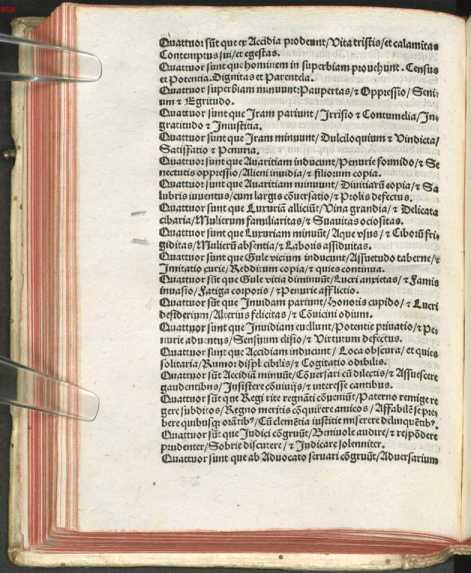 Quattuor sūt que ex Accidia prodeunt/Vita tristis/et calamitas
Contemptus sui/et egestas.
Quattuor sunt que hominem in superbiam prouehunt. Census
et Potentia. Dignitas et Parentela.
Quattuor superbiam minuunt: Paupertas/⁊ Oppressio/Seni⸗
um ⁊ Egritudo.
Quattuor sunt que Iram pariunt/Irrisio ⁊ Contumelia/In⸗
gratitudo ⁊ Iniustitia.
Quattuor sunt que Iram minuunt/Dulciloquium ⁊ Vindicta/
Satisfatio ⁊ Penuria.
Quattuor sunt que Auaritiam inducunt/Penurie formido/⁊ Se
nectutis oppressio/Alieni inuidia/⁊ filiorum copia.
Quattuor sunt que Auaritiam minuunt/Diuitiarū copia/⁊ Sa
lubris iuuentus/cum largis cōuersatio/⁊ Prolis defectus.
Quattuor sunt que Luxuriā alliciūt/Vina grandia/⁊ Delicata
cibaria/Mulierum familiaritas/⁊ Suauitas ociositas.
Quattuor sunt que Luxuriam minuūt/Aque vsus/⁊ Ciborū fri⸗
giditas/Mulierū absentia/⁊ Laboris assiduitas.
Quattuor sunt que Gule vicium inducunt/Assuetudo taberne/⁊
Imitatio curie/Reddituum copia/⁊ quies continua.
Quattuor sūt que Gule vitia diminuūt/Luci anxietas/⁊ Famis
inuasio/Fatiga corporis/⁊ Penurie afflictio.
Quattuor sūt que Inuidiam pariunt/Honoris cupido/⁊ Lucri
desiderium/Alterius felicitas/⁊ Cōuicini odium.
Quattuor sunt que Inuidiam euellunt/Potentie priuatio/⁊ Pe⸗
nurie aduentus/Sensuum elisio/⁊ Virtutum defectus.
Quattuor sunt que Accidiam inducunt/Loca obscura/et quies
solitaria/Rumor displicibilis/⁊ Cogitatio odibilis.
Quattuor sūt Accidiā minuūt/Cōuersari cū dilectis/⁊ Assuescere
gaudentibus/Insistere cōuiuijs/⁊ interesse cantibus.
Quattuor sūt que Regi rite regnāti cōueniūt/Paterno remige re
gere subditos/Regno meritis cōquirere amicos/Affabilē se pre⸗
bere quibusqꝫ /Cū clemētia iustitie miserere delinquētibꝰ.
Quattuor sūt que Iudici cōgruūt/Beniuole audire/⁊ respōdere
prudenter/Sobrie discutere/⁊ Iudicare solenniter.
Quattuor sunt que ab Aduocato seruari cōgruūt/Aduersarium